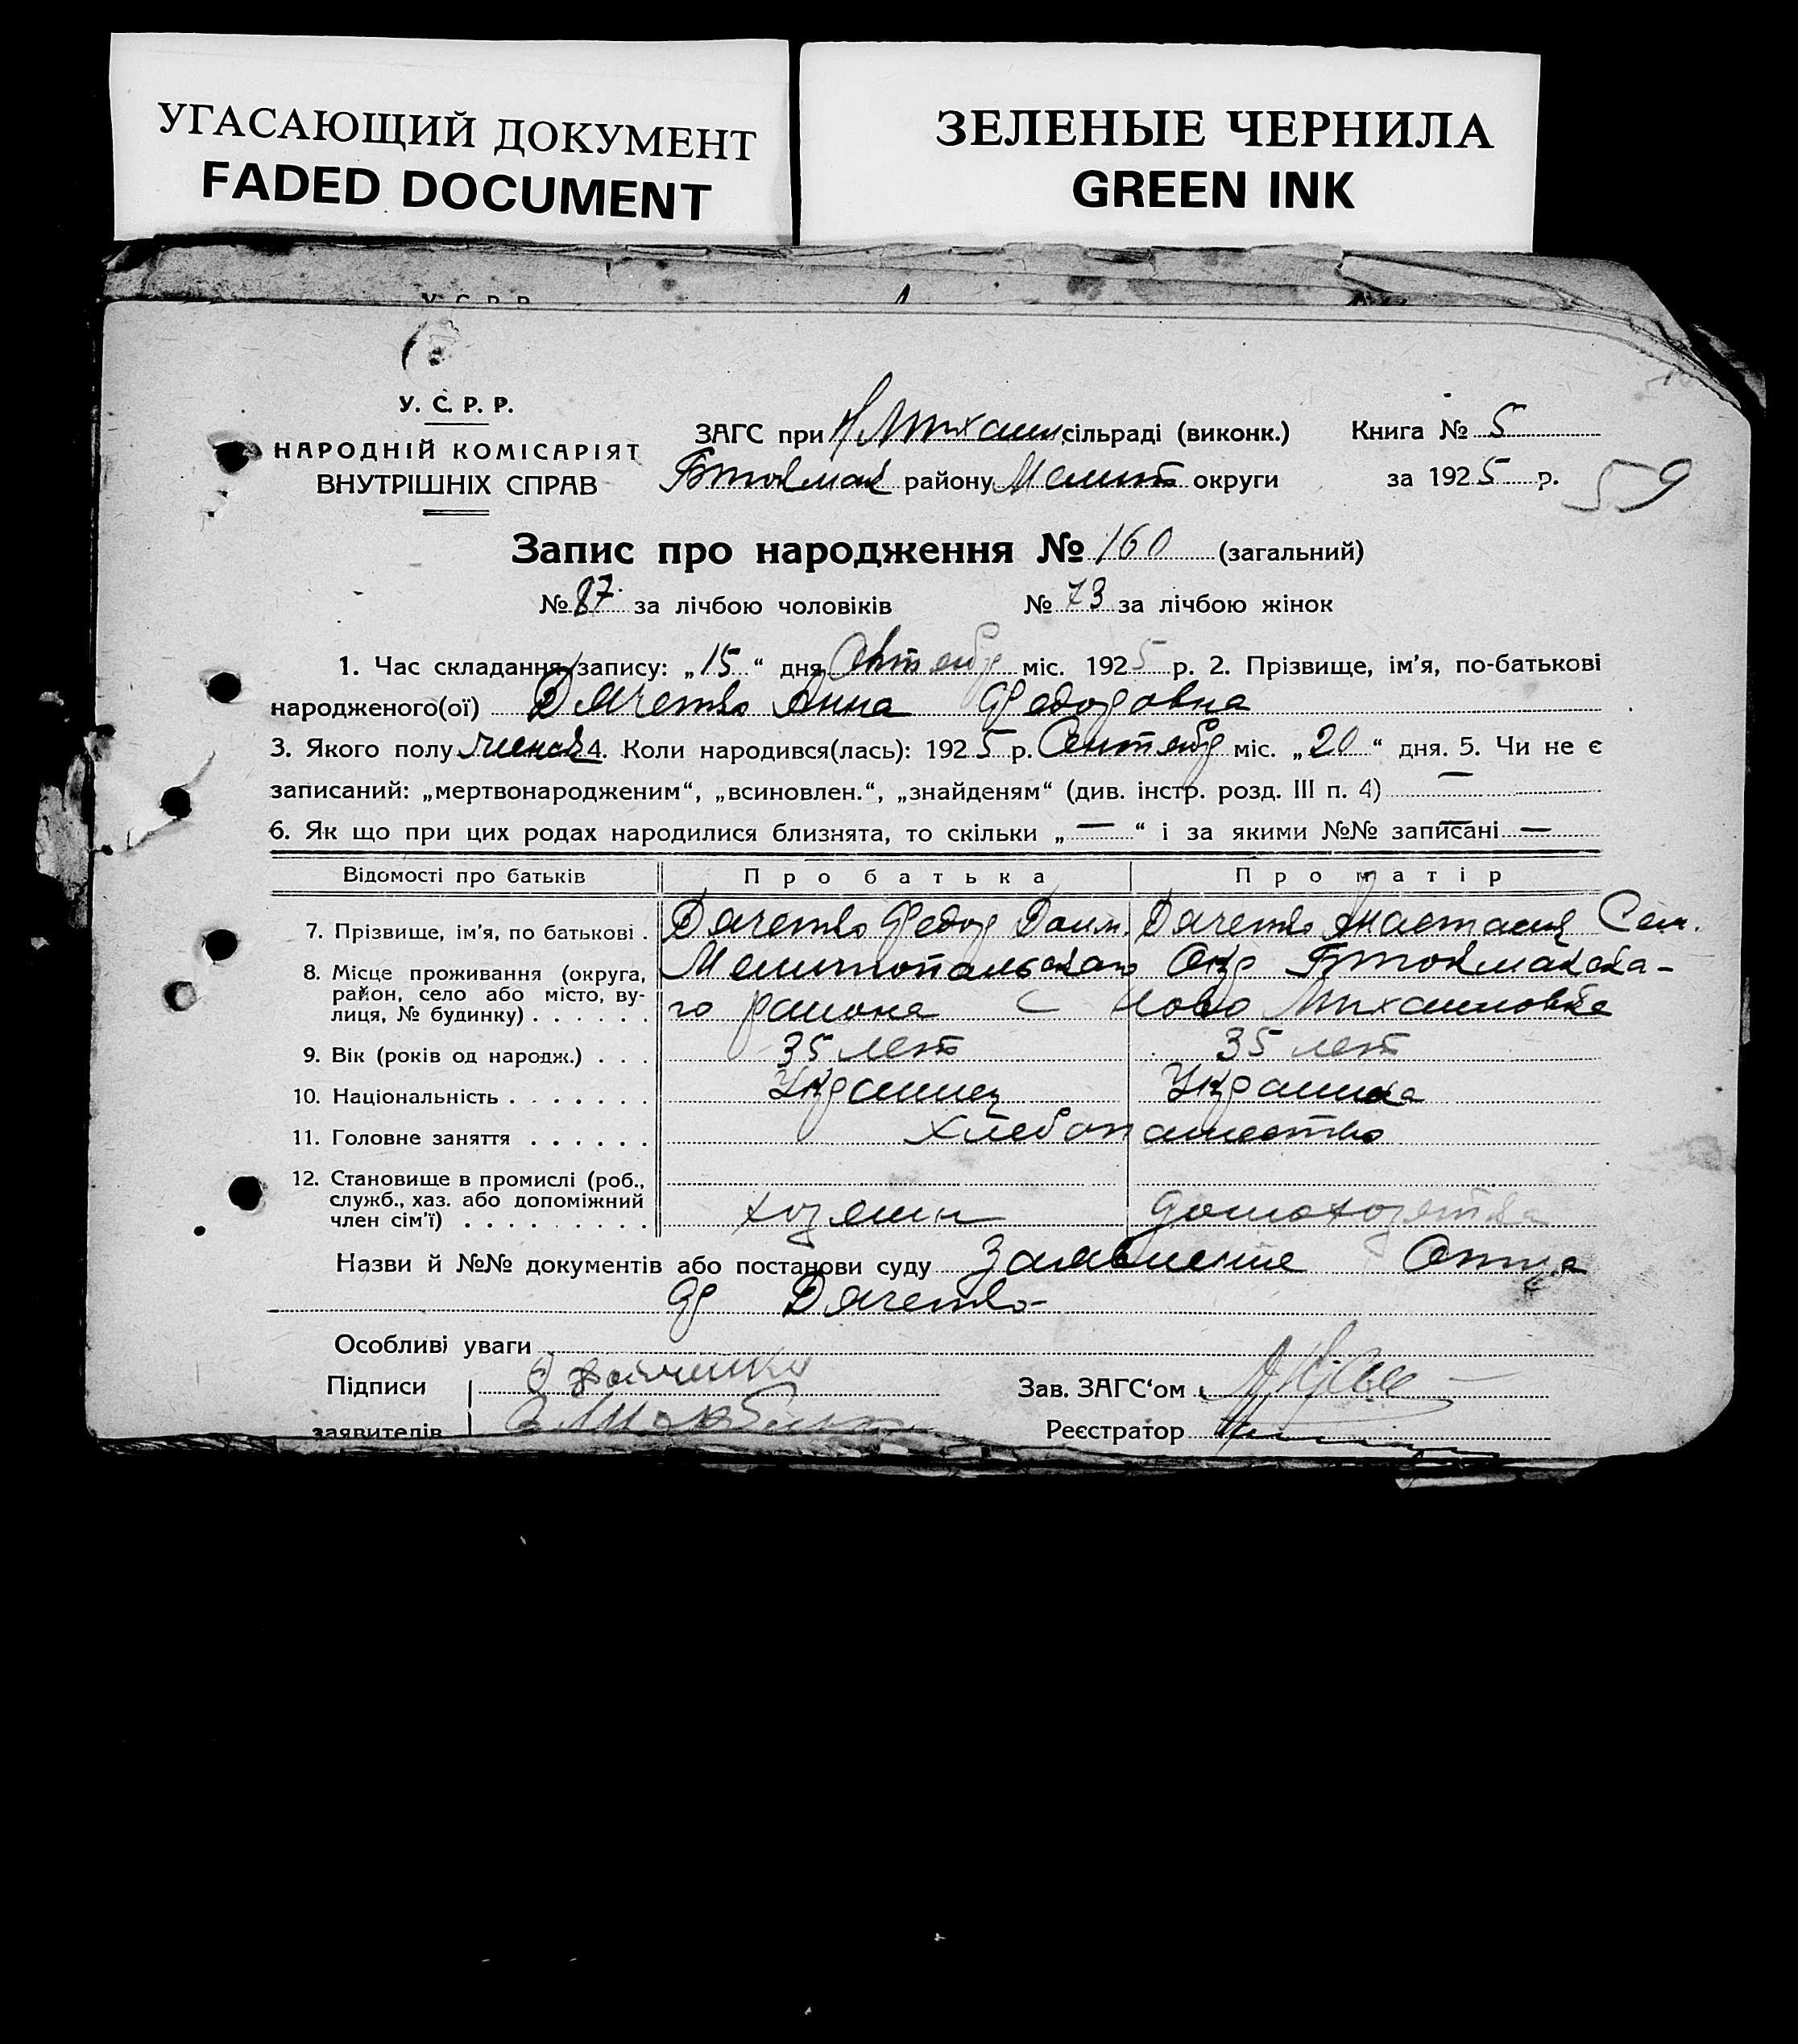 УГАСАЮЩИЙ ДОКУМЕНТ
FADED DOCUMENT
ЗЕЛЕНЫЕ ЧЕРНИЛА
GREEN INK
У. С. Р. Р.
У. С. Р. Р.
НАРОДНІЙ КОМІСАРІЯТ
ВНУТРІШНІХ СПРАВ
ЗАГС при Н Михаил сільраді (виконк.) Книга № 5
Бтокмак району Мелит округи за 1925 р.
59
Запис про народження № 160 (загальний)
№ 87 за лічбою чоловіків № 73 за лічбою жінок
1. Час складання запису: „15“ дня Октябр міс. 1925 р. 2. Прізвище, ім'я, по-батькові
народженого(ої) Дяченко Анна Федоровна
3. Якого полу женск 4. Коли народився(лась): 1925 р. Сентябр міс. „20“ дня. 5. Чи не є
записаний: „мертвонародженим“, „всиновлен.“, „знайденям“ (див. інстр. розд. III п. 4) —
6. Як що при цих родах народилися близнята, то скільки „—“ і за якими №№ записані —
Відомості про батьків Про батька Про матір
7. Прізвище, ім'я, по батькові . Дяченко Федор Дяченко Анастасия Сем.
8. Місце проживання (округа, Мелитопольского Окр Бтокмакска-
район, село або місто, ву-
лиця, № будинку) . . . . . . го района С Ново Михайловка
9. Вік (років од народж.) . . . 35 лет 35 лет
10. Національність . . . . . . . Украинец Украинка
11. Головне заняття . . . . . . Хлебопашество
12. Становище в промислі (роб.,
служб., хаз. або допоміжний
член сім'ї) . . . . . . . . . хозяин домохозяйка
Назви й №№ документів або постанови суду Заявление Отца
Ф Дяченко
Особливі уваги
Підписи Зав. ЗАГС'ом
заявителів Реєстратор